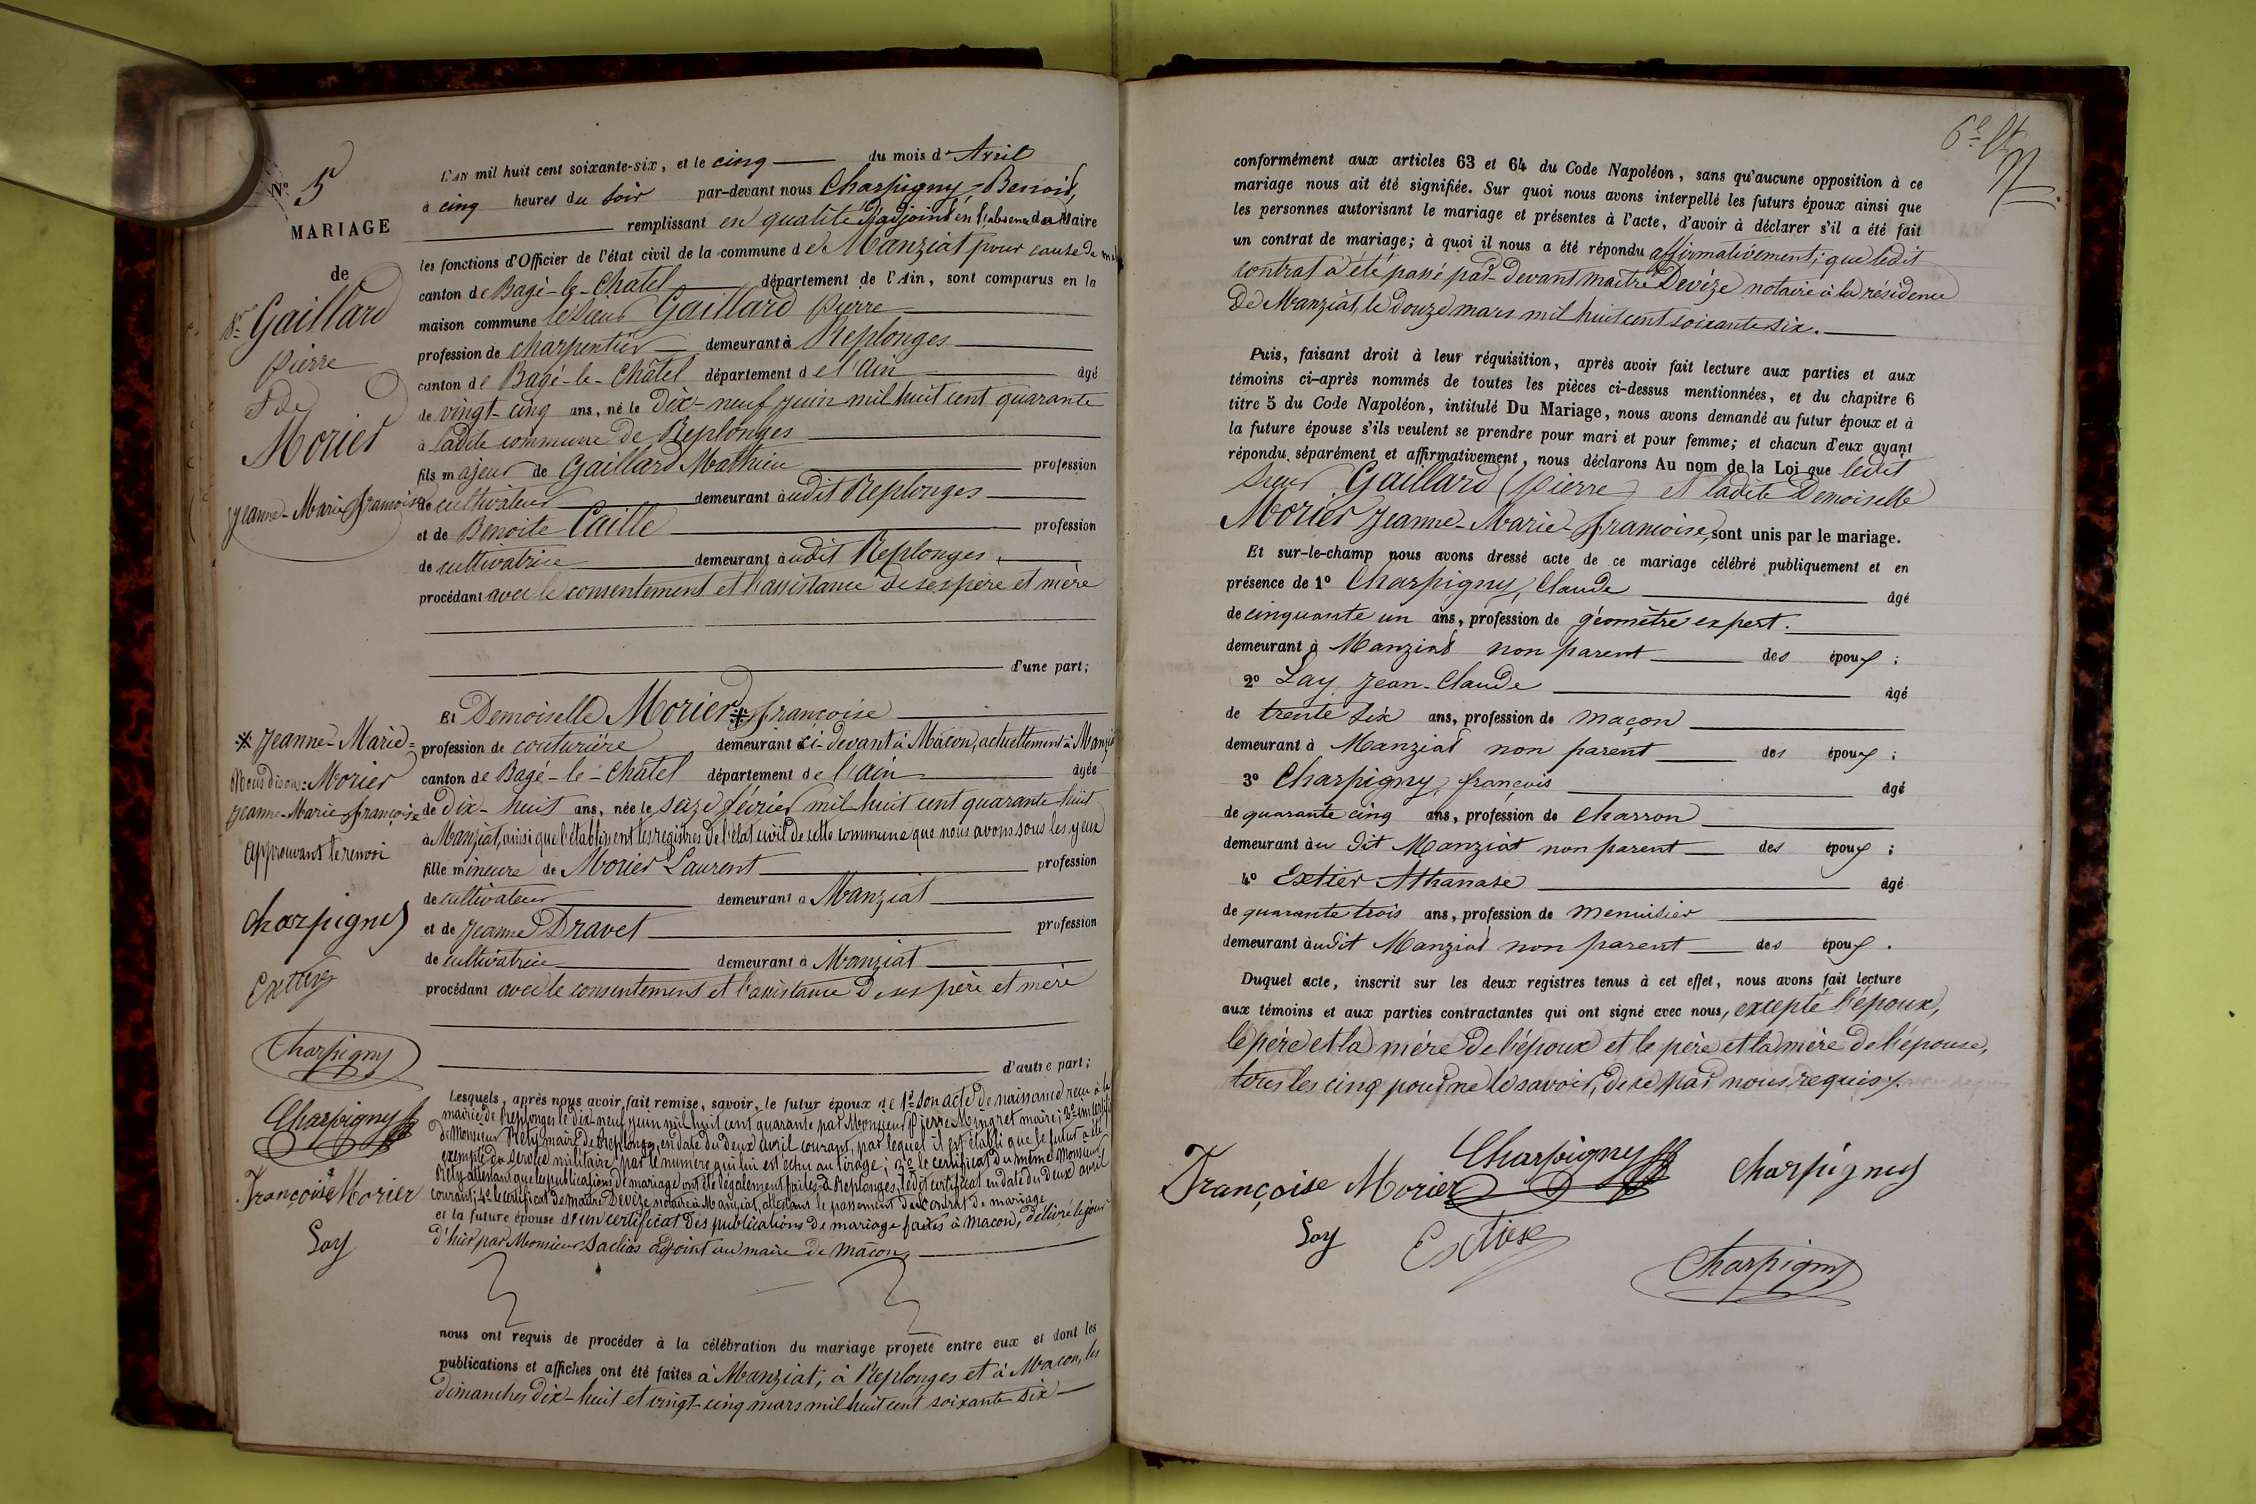 N° 5
MARIAGE
de
Sr Gaillard
Pierre
Et de
Morier
Jeanne-Marie Francoise
L'AN mil huit cent soixante-six, et le cinq du mois d'Avril
à cinq heures du soir par-devant nous Charpigny-Benoit,
remplissant en qualité d'adjoint en l'absence du Maire
les fonctions d'Officier de l'état civil de la commune de Manziat pour cause de
canton de Bagé-le-Chatel département de l'Ain, sont comparus en la
maison commune le sieur Gaillard Pierre
profession de charpentier demeurant à Replonges
canton de Bagé-le-Châtel département de l'Ain âgé
de vingt-cinq ans, né le dix-neuf juin mil huit cent quarante
à ladite commune de Replonges
fils majeur de Gaillard Mathieu profession
de cultivateur demeurant audit Replonges
et de Benoite Caille profession
de cultivatrice demeurant audit Replonges,
procédant avec le consentement et l'assistance de ses père et mère
d'une part;
Et Demoiselle Morier * françoise
profession de couturière demeurant ci-devant à Mâcon, actuellement à Manziat
canton de Bagé-le-Châtel département de l'Ain âgée
de dix-huit ans, née le seize février mil huit cent quarante huit
à Manziat, ainsi que l'établissent les registres de l'état civil de cette commune que nous avons sous les yeux
fille mineure de Morier Laurent profession
de cultivateur demeurant à Manziat
et de Jeanne Dravet profession
de cultivatrice demeurant à Manziat
procédant avec le consentement et l'assistance de ses père et mère
d'autre part;
* Jeanne-Marie=
Nous disons: Morier
Jeanne-Marie françoise
Approuvant le renvoi
Charpigny
Extier
Charpigny
Charpigny
Françoise Morier
Loy
Lesquels, après nous avoir fait remise, savoir, le futur époux de 1° son acte de naissance reçu à la
mairie de Replonges le dix-neuf juin mil huit cent quarante par Monsieur Pierre Mingret maire; 2° un certificat
de Monsieur Réty maire de Replonges, en date du deux avril courant, par lequel il est établi que le futur a été
exempté du service militaire par le numéro qui lui est échu au tirage; 3° le certificat du même Monsieur
Réty attestant que les publications de mariage ont été légalement faites à Replonges, ledit certificat en date du deux avril
courant; 4° le certificat de maître Devèze notaire à Manziat, attestant le passement du contrat de mariage
et la future épouse d'un certificat des publications de mariage faites à Macon, délivré le jour
d'hier par Monsieur adjoint au maire de Mâcon,
nous ont requis de procéder à la célébration du mariage projeté entre eux et dont les
publications et affiches ont été faites à Manziat, à Replonges et à Macon, les
dimanches dix-huit et vingt-cinq mars mil huit cent soixante six
conformément aux articles 63 et 64 du Code Napoléon, sans qu'aucune opposition à ce
mariage nous ait été signifiée. Sur quoi nous avons interpellé les futurs époux ainsi que
les personnes autorisant le mariage et présentes à l'acte, d'avoir à déclarer s'il a été fait
un contrat de mariage; à quoi il nous a été répondu affirmativement; que ledit
contrat a été passé par-devant maître Devèze notaire à la résidence
de Manziat, le douze mars mil huit cent soixante six.
Puis, faisant droit à leur réquisition, après avoir fait lecture aux parties et aux
témoins ci-après nommés de toutes les pièces ci-dessus mentionnées, et du chapitre 6
titre 5 du Code Napoléon, intitulé Du Mariage, nous avons demandé au futur époux et à
la future épouse s'ils veulent se prendre pour mari et pour femme; et chacun d'eux ayant
répondu séparément et affirmativement, nous déclarons Au nom de la Loi que ledit
Sieur Gaillard (Pierre) et ladite Demoiselle
Morier Jeanne-Marie-francoise, sont unis par le mariage.
Et sur-le-champ nous avons dressé acte de ce mariage célébré publiquement et en
présence de 1° Charpigny, Claude âgé
de cinquante un ans, profession de géomètre expert.
demeurant à Manziat non parent des époux;
2° Lay Jean-Claude âgé
de trente six ans, profession de maçon
demeurant à Manziat non parent des époux;
3° Charpigny, françois âgé
de quarante cinq ans, profession de charron
demeurant au dit Manziat non parent des époux;
4° Extier Athanase âgé
de quarante trois ans, profession de menuisier
demeurant audit Manziat non parent des époux.
Duquel acte, inscrit sur les deux registres tenus à cet effet, nous avons fait lecture
aux témoins et aux parties contractantes qui ont signé avec nous, excepté l'époux,
le père et la mère de l'époux et le père et la mère de l'épouse,
tous les cinq pour ne le savoir, de ce par nous requis.
Charpigny
Charpigny
Françoise Morier
Loy
Extier
Charpigny